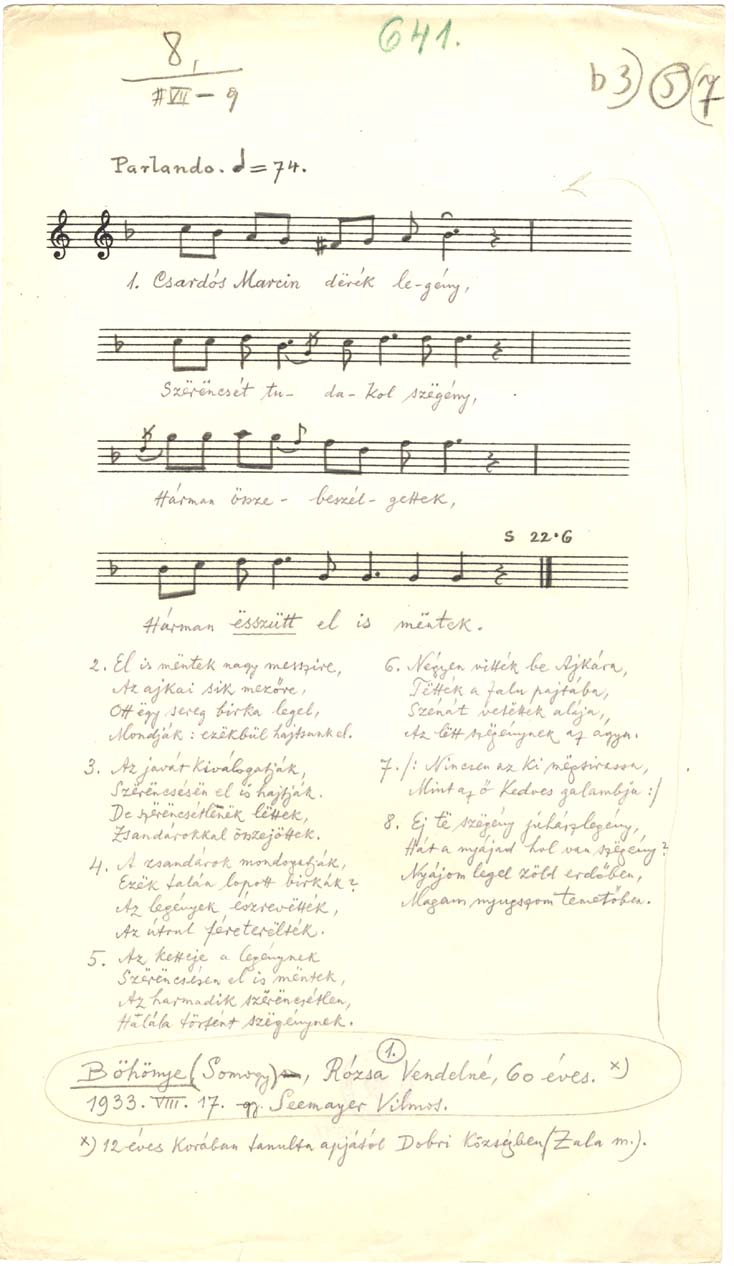 641.
8,
#VII — 9
b3) 5 (7
Parlando. ♩ = 74.
1. Csardós Marcin dërék le-gény,
Szërëncsét tu- da-kol szëgény,
Hárman össze- beszél-gettek,
S 22·G
Hárman ësszütt el is mëntek.
2. El is mëntek nagy messzire,
Az ajkai sik mezőre,
Ott ëgy sereg birka legel,
Mondják: ezëkbül hajtsunk el.
3. Az javát kiválogatják,
Szërëncsésën el is hajtják.
De szërëncsétlenëk lëttek,
Zsandárokkal összejöttek.
4. A zsandárok mondogatják,
Ezëk talán lopott birkák?
Az legények észrevëtték,
Az útrul féreterëlték.
5. Az ketteje a legénynek
Szërëncsésen el is mëntek,
Az harmadik szërëncsétlen,
Halála történt szëgénynek.
6. Négyen vitték be Ajkára,
Tëtték a falu pajtába,
Szénát vetëttek alája,
Az lëtt szëgénynek az ágya.
7. /: Nincsen az ki mëgsirassa,
Mint az ő kedves galambja :/
8. Ej të szëgény juhászlegény,
Hát a nyájad hol van szëgény?
Nyájom legel zöld erdőben,
Magam nyugszom temetőben.
1.
Böhönye (Somogy), Rózsa Vendelné, 60 éves. x)
1933. VIII. 17. gy. Seemayer Vilmos.
x) 12 éves korában tanulta apjától Dobri községben (Zala m.).